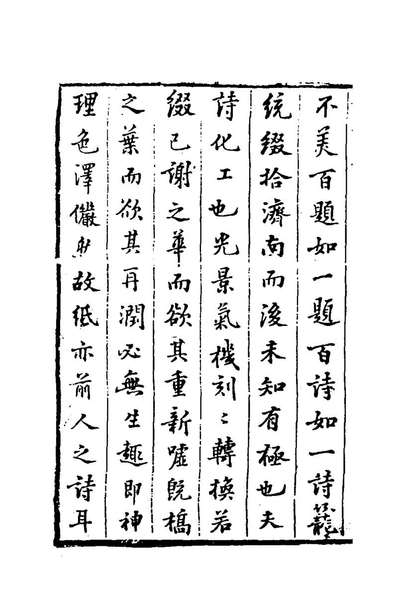 不美百題如一題百詩如一詩籠
統綴拾濟南而後未知有極也夫
詩化工也光景氣機刻〻轉換若
綴已謝之華而欲其重新噓既槁
之葉而欲其再潤必無生趣即神
理色澤儼然故紙亦前人之詩耳